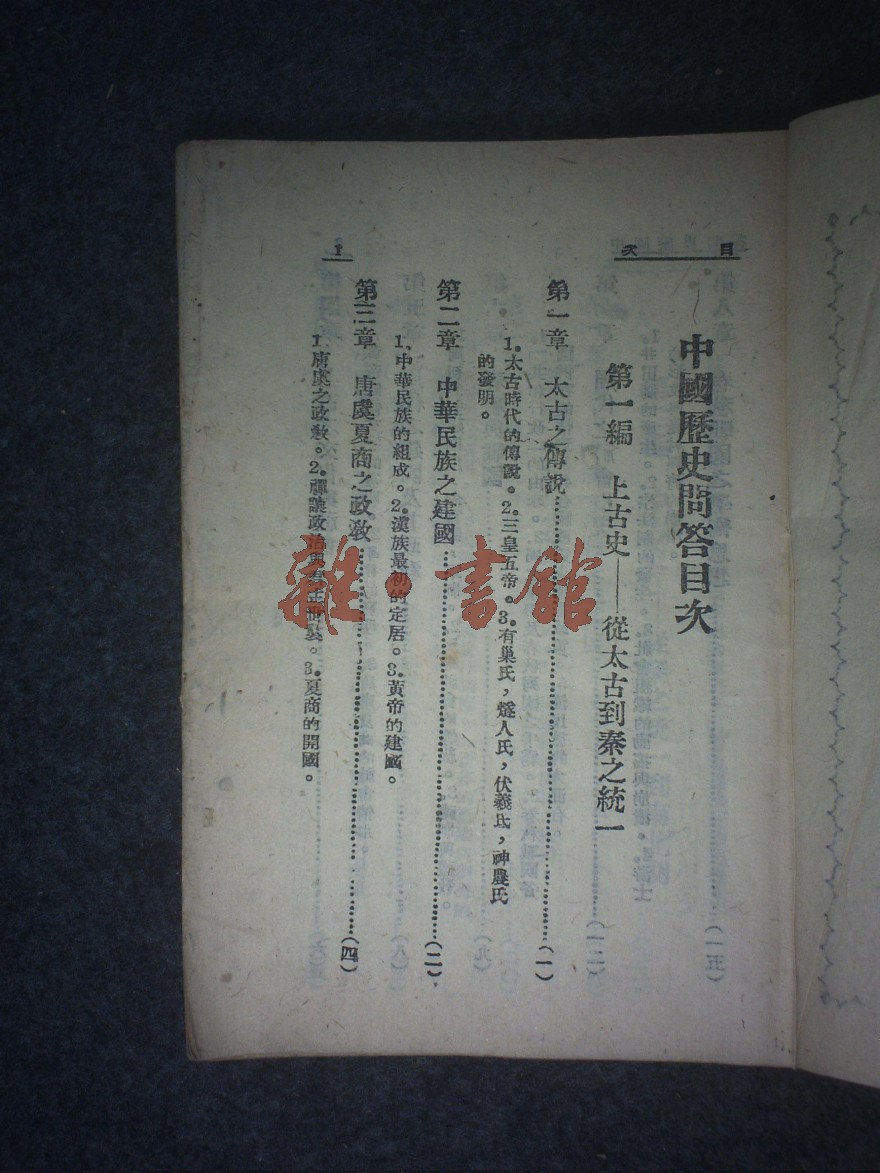 目次
中國歷史問答目次
第一編 上古史——從太古到秦之統一
第一章 太古之傳說……(一)
1。太古時代的傳說。2。三皇五帝。3。有巢氏,燧人氏,伏羲氏,神農氏
的發明。
第二章 中華民族之建國……(二)
1、中華民族的組成。2。漢族最初的定居。3。黃帝的建國。
第三章 唐虞夏商之政教……(四)
1、唐虞之政教。2。禪讓政治與 。3。夏商的開國。
1
雜·書館